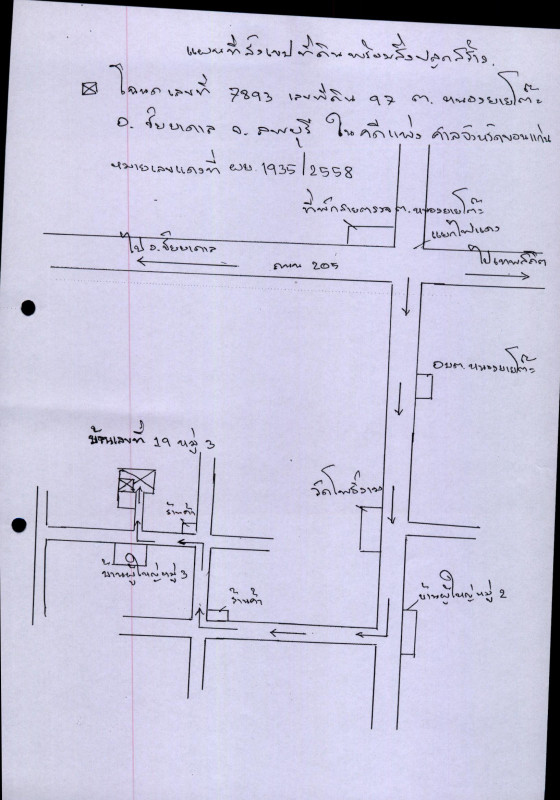 แผนที่สังเขปที่ดินพร้อมสิ่งปลูกสร้าง.
โฉนดเลขที่ 7893 เลขที่ดิน 97 ต. หนองยายโต๊ะ
อ. ชัยบาดาล จ. ลพบุรี ในคดีแพ่ง ศาลจังหวัดขอนแก่น
หมายเลขแดงที่ ผบ. 1935/2558
ที่พักสายตรวจ ต. หนองยายโต๊ะ
แยกไฟแดง
ไป อ. ชัยบาดาล
ถนน 205
ไปเทพสถิต
อบต. หนองยายโต๊ะ
บ้านเลขที่ 19 หมู่ 3
ร้านค้า
วัดโพธิ์งาม
บ้านผู้ใหญ่หมู่ 3
ร้านค้า
บ้านผู้ใหญ่หมู่ 2